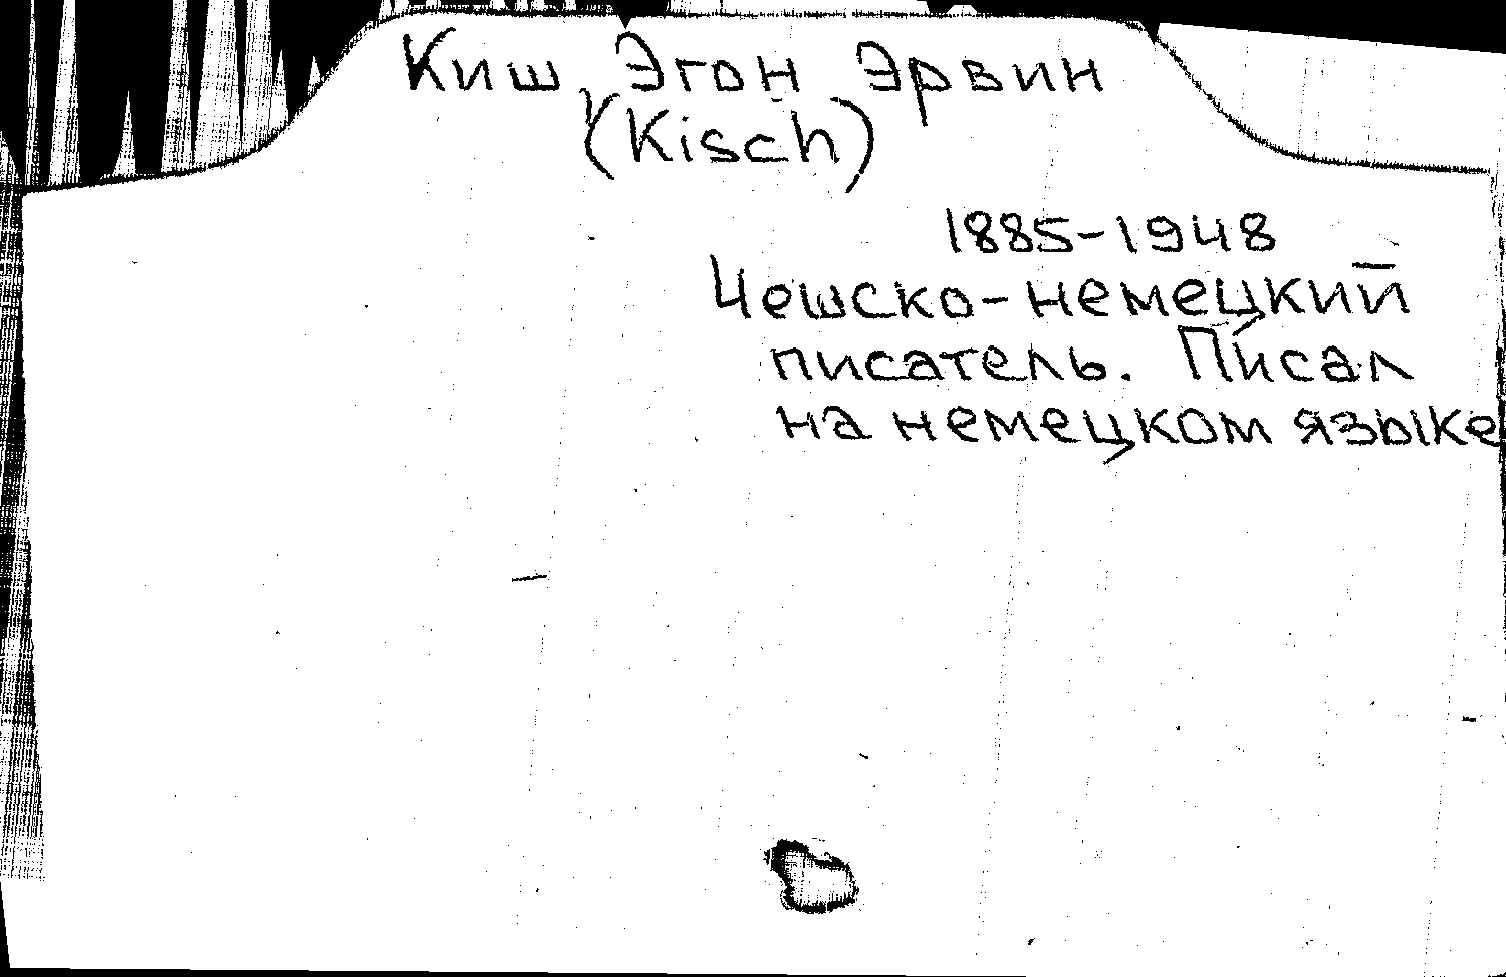 Киш, Эгон Эрвин
(Kisch)
1885-1948
Чешско-немецкий
писатель. Писал
на немецком языке